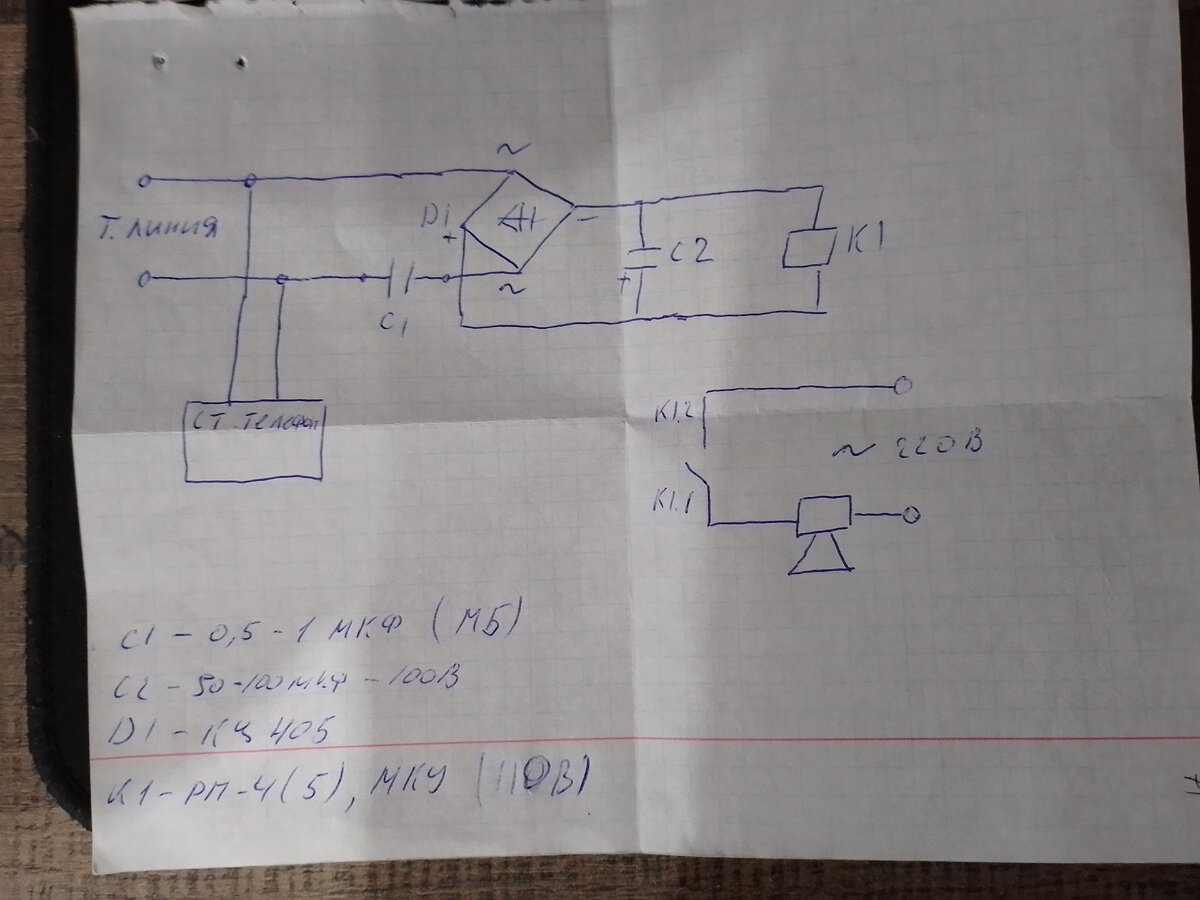 ~
D1
+
−
Т. ЛИНИЯ
~
C1
+
C2
K1
СТ. Телефон
K1.2
~ 220В
K1.1
C1 – 0,5 – 1 МКФ (МБ)
C2 – 50-100МКФ – 100В
D1 – КЦ 405
K1 – РП-4(5), МКУ (110В)